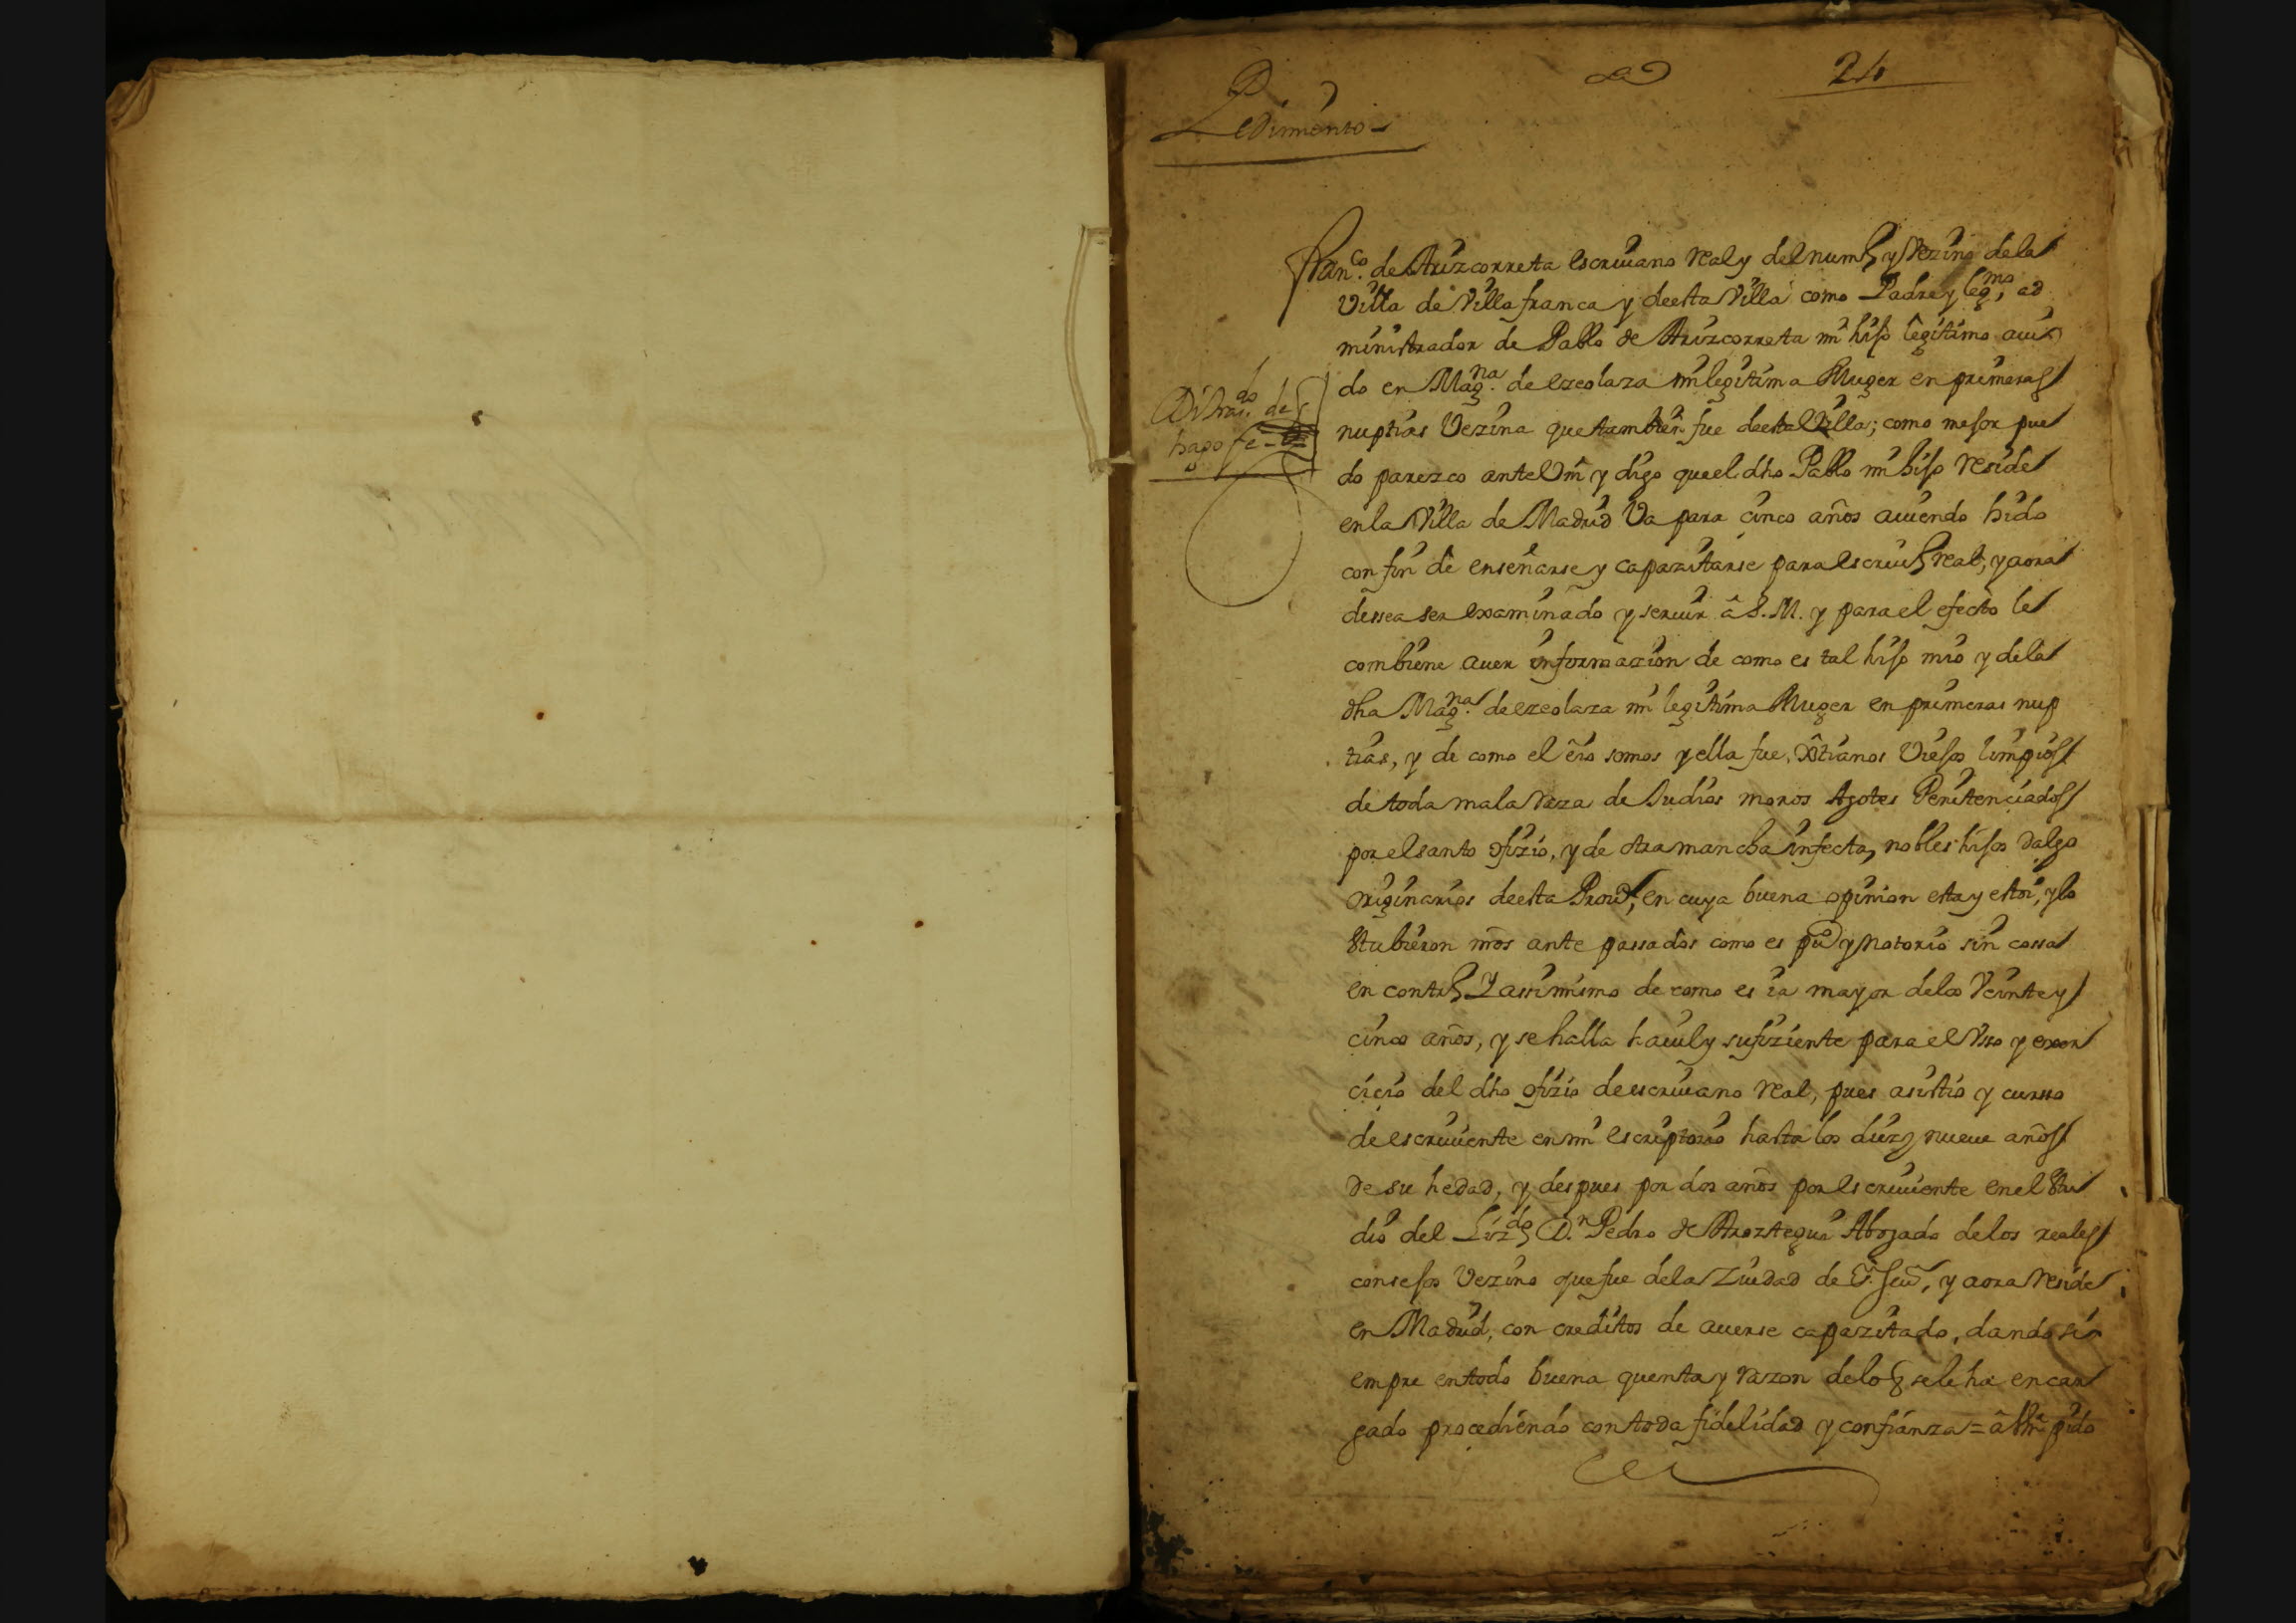 24
Pedimento
Fran.co de Arizcorreta escriuano real y del num y Vezino dela
Villa de Villafranca y deesta Villa como Padre y leg.mo ad
ministrador de Pablo de Arizcorreta mi hijo legitimo aui
do en Mag.na de ezeolaza mi legitima Muger en primeras
nuptias Vezina que tambien fue deesta Villa; como mejor pue
do parezco ante Vm y digo que el dho Pablo mi hijo reside
en la Villa de Madrid Va para cinco años auiendo hido
con fin de enseñarse y capazitarse para escriu real, y aora
dessea ser examinado y seruir â S. M. y para el efecto le
combiene auer informazion de como es tal hijo mio y dela
dha Mag.na de ezeolaza mi legitima Muger en primeras nup
tias, y de como el êio somos y ella fue, Xtianos Viejos limpios
de toda mala raza de Judios moros Agotes Penitenciados
por el santo ofizio, y de otra mancha infecta, nobles hijos dalgo
originarios deesta Prou, en cuya buena opinion esta y estoi, y lo
stubieron mos ante passados como es pu y notorio sin cossa
en contr Y assimismo de como es ia mayor delos Veinte y
cinco años, y se halla hauil y sufiziente para el Vso y exer
cicio del dho ofizio de escriuano real, pues asistio y curso
de escriuiente en mi escriptorio hasta los diez y nueue años
de su hedad, y despues por dos años por escriuiente en el stu
dio del Liz.do D.n Pedro de Aroztegui Abogado delos reales
consejos Vezino que fue dela Ziudad de Sn Seu, y aora reside
en Madrid, con creditos de auerse capazitado, dando si
empre en todo buena quenta y razon delo q sele ha encar
gado procediendo con toda fidelidad y confianza = â Vm pido
hago fe